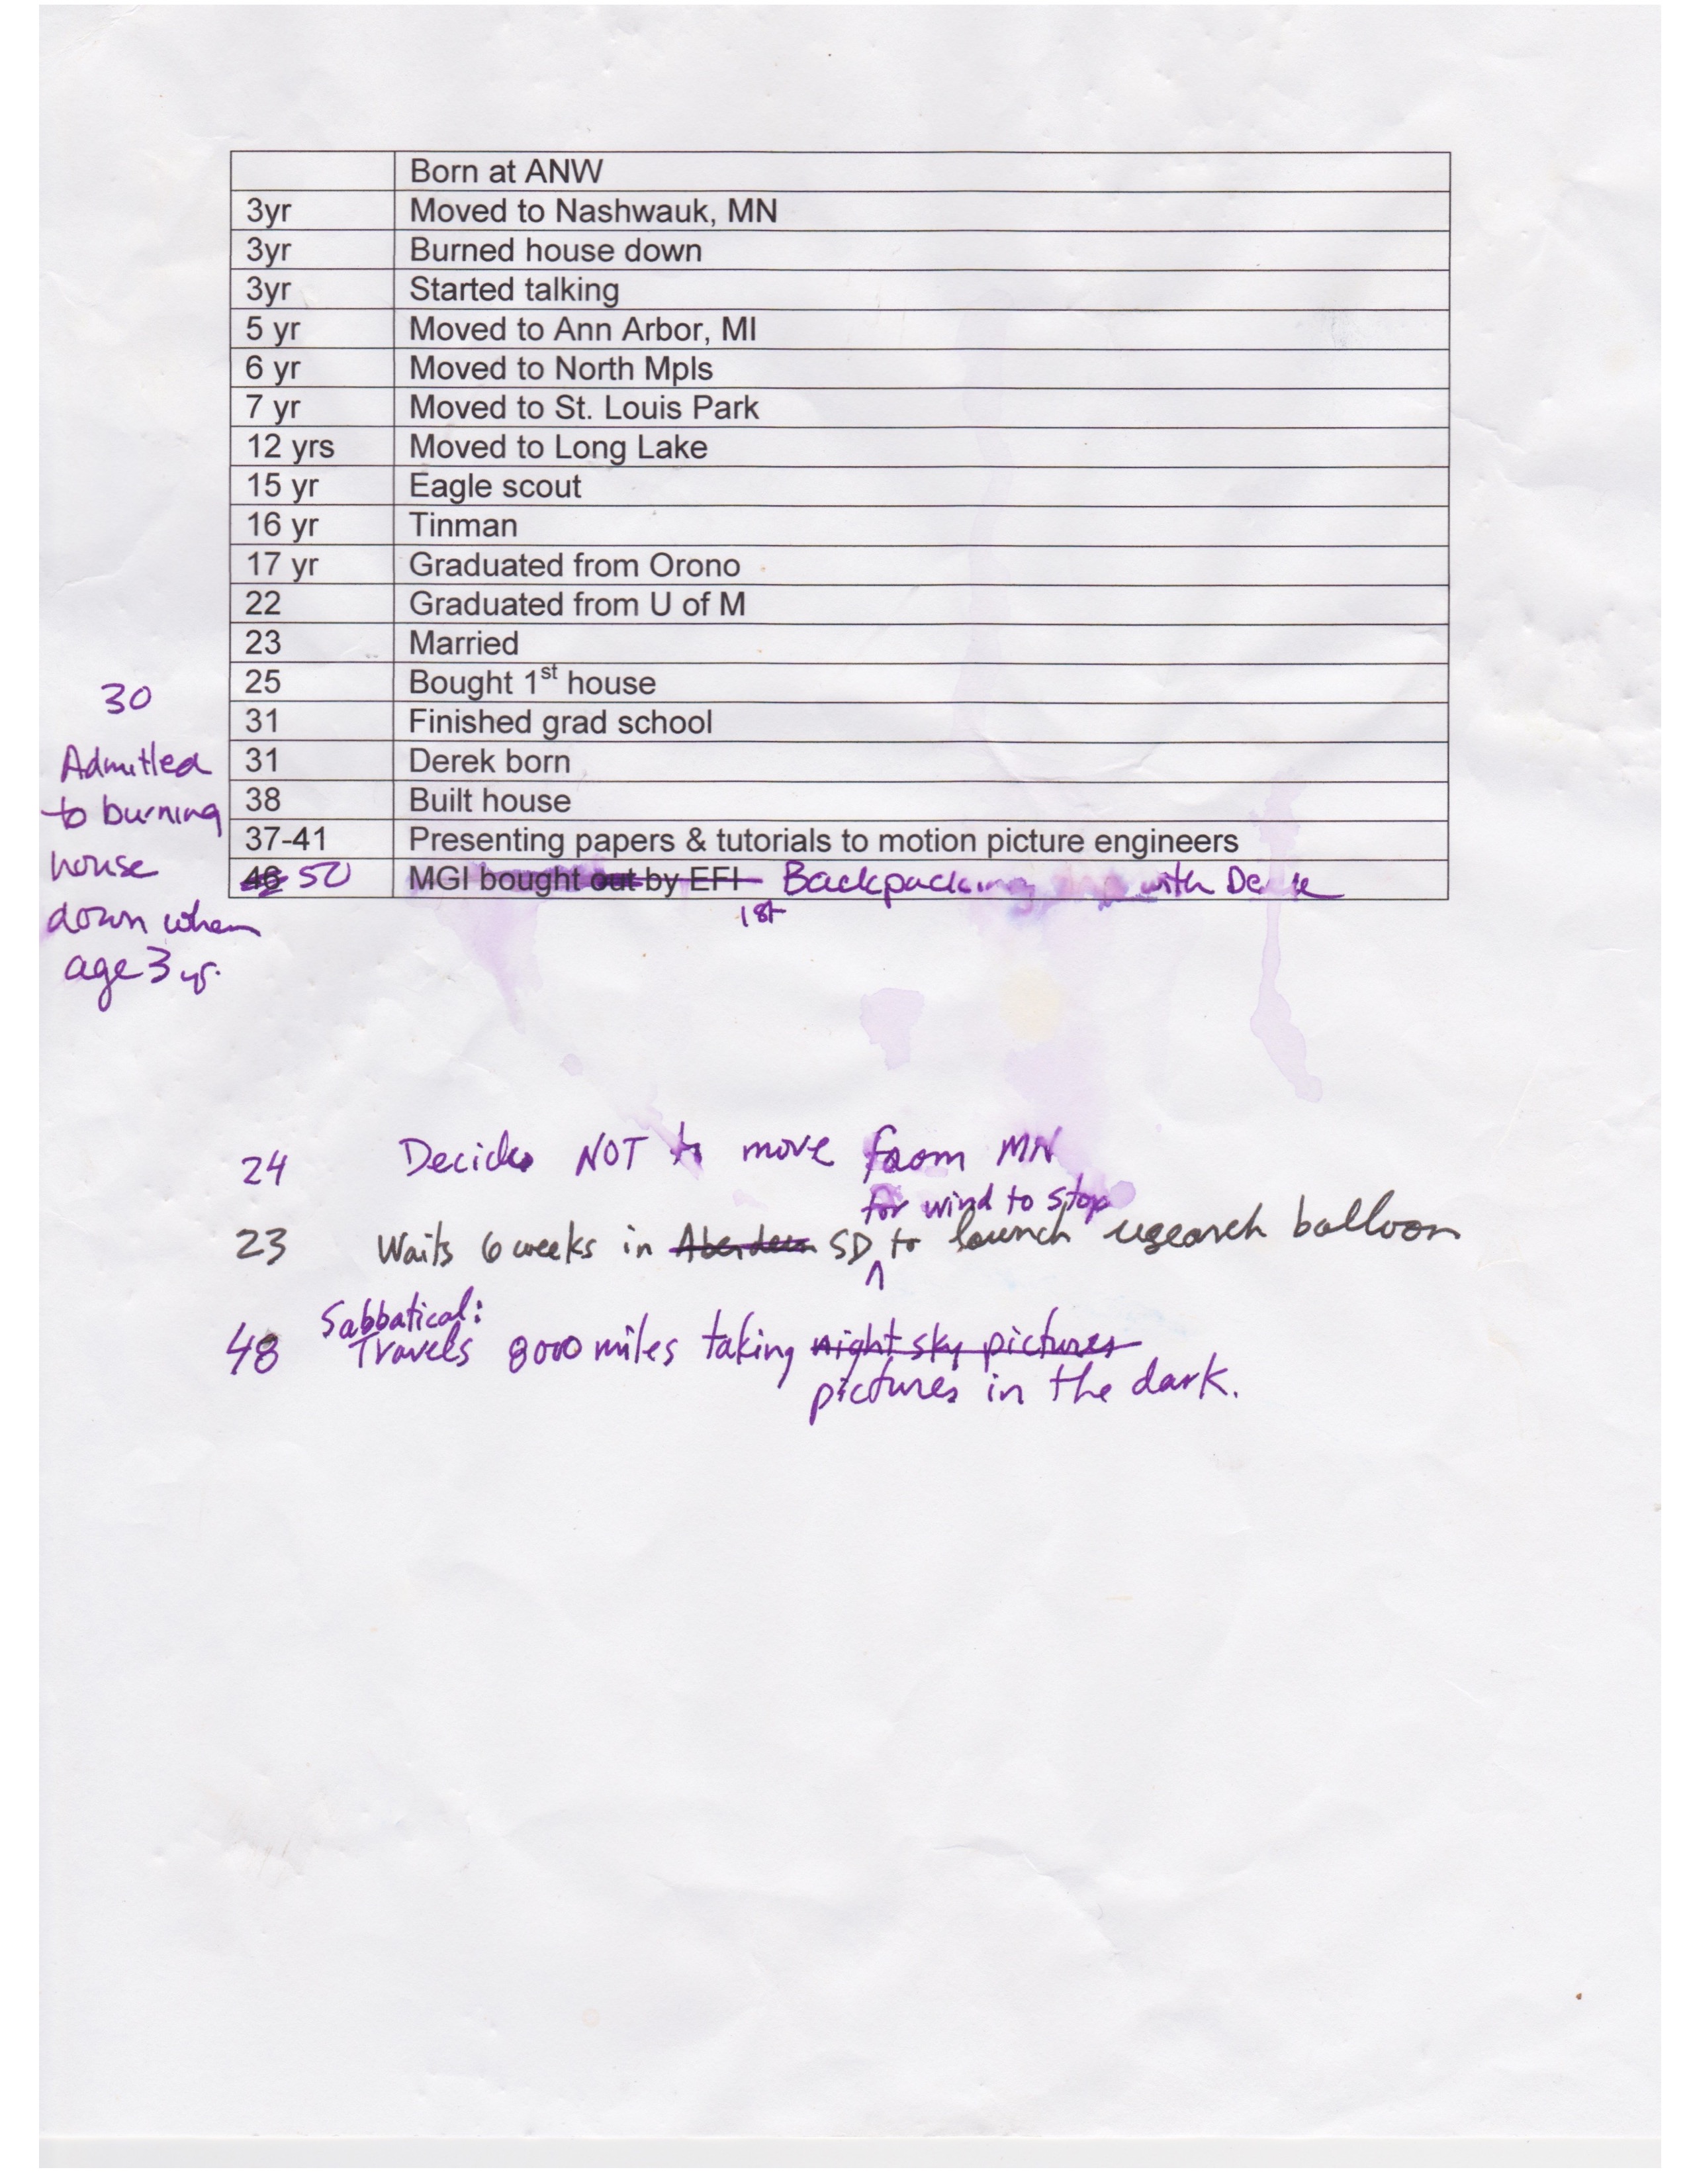 Born at ANW
3yr Moved to Nashwauk, MN
3yr Burned house down
3yr Started talking
5 yr Moved to Ann Arbor, MI
6 yr Moved to North Mpls
7 yr Moved to St. Louis Park
12 yrs Moved to Long Lake
15 yr Eagle scout
16 yr Tinman
17 yr Graduated from Orono
22 Graduated from U of M
23 Married
25 Bought 1st house
31 Finished grad school
31 Derek born
38 Built house
37-41 Presenting papers & tutorials to motion picture engineers
46 50 MGI bought out by EFI Backpacking with
1st
30
Admitted
to burning
house
down when
age 3 yr.
24 Decides NOT to move from MN
for wind to stop
23 Waits 6 weeks in Aberdeen SD to launch research balloon
Sabbatical:
48 Travels 8000 miles taking night sky pictures
pictures in the dark.